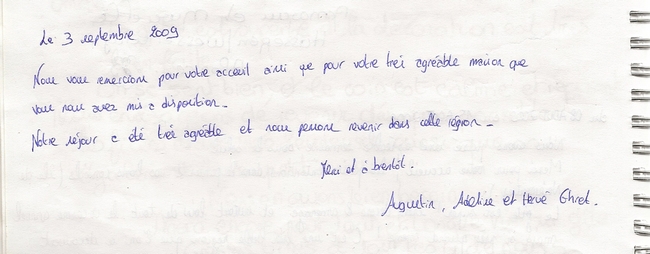 Le 3 septembre 2009
Nous vous remercions pour votre acceuil ainsi que pour votre très agréable maison que
vous nous avez mis a disposition.
Notre séjour a été très agréable et nous pensons revenir dans cette région.
Merci et à bientôt.
Augustin, Adeline et Hervé Ehret.